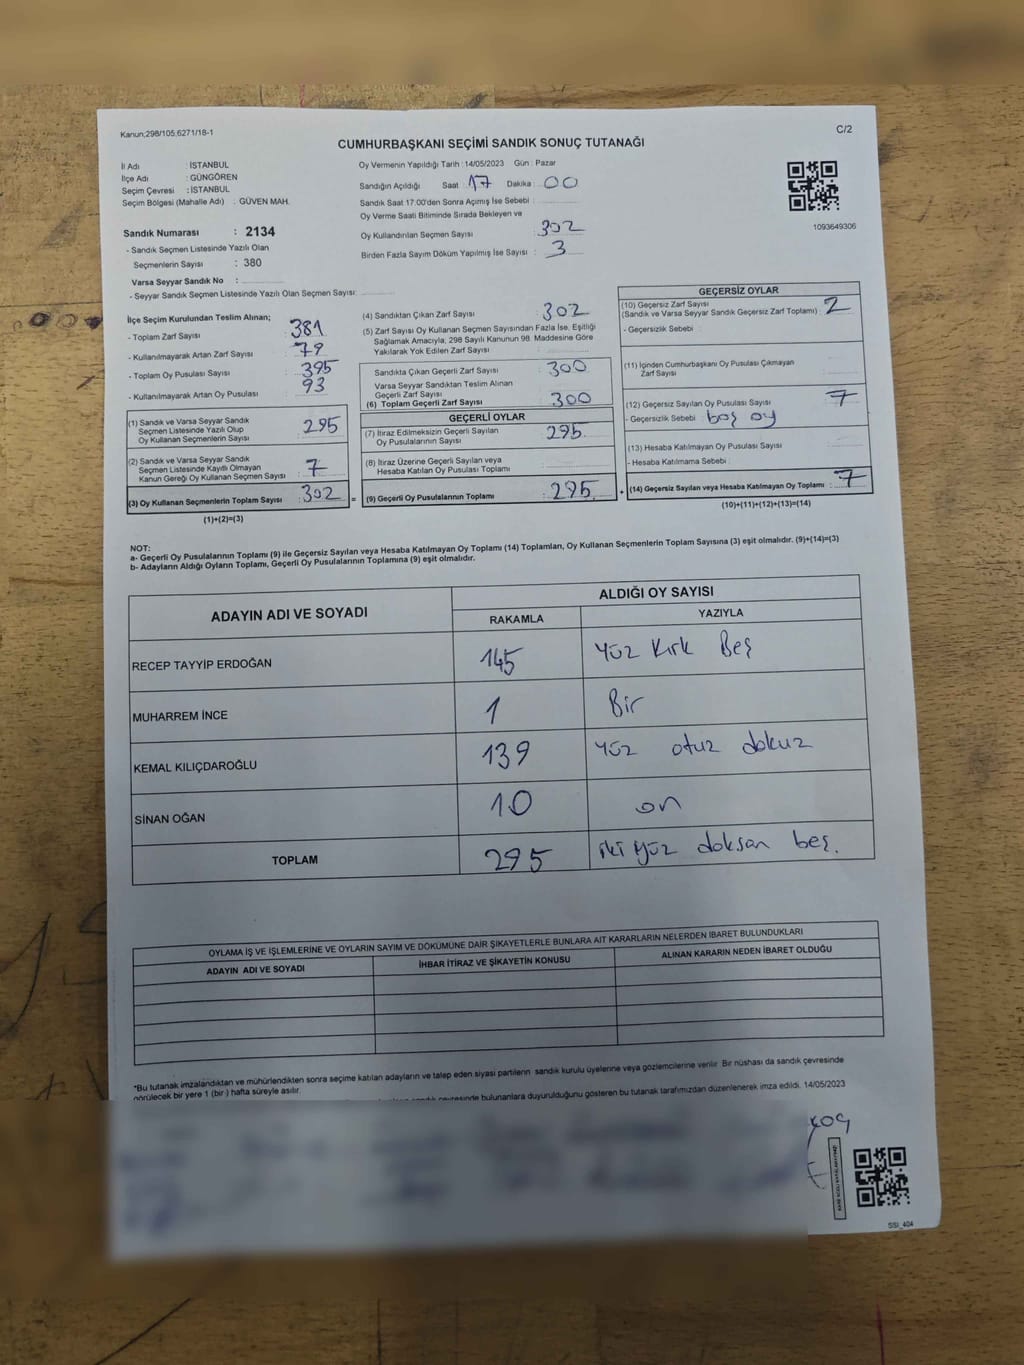 Kanun;298/105,6271/18-1
C/2
CUMHURBAŞKANI SEÇİMİ SANDIK SONUÇ TUTANAĞI
İl Adı : İSTANBUL
İlçe Adı : GÜNGÖREN
Seçim Çevresi : İSTANBUL
Seçim Bölgesi (Mahalle Adı) : GÜVEN MAH.
Sandık Numarası : 2134
- Sandık Seçmen Listesinde Yazılı Olan
Seçmenlerin Sayısı : 380
Varsa Seyyar Sandık No :
- Seyyar Sandık Seçmen Listesinde Yazılı Olan Seçmen Sayısı:
Oy Vermenin Yapıldığı Tarih :14/05/2023 Gün : Pazar
Sandığın Açıldığı Saat : 17 Dakika : 00
Sandık Saat 17:00'den Sonra Açımış İse Sebebi :
Oy Verme Saati Bitiminde Sırada Bekleyen ve
Oy Kullandırılan Seçmen Sayısı : 302
Birden Fazla Sayım Döküm Yapılmış İse Sayısı : 3
1093649306
İlçe Seçim Kurulundan Teslim Alınan;
- Toplam Zarf Sayısı : 381
- Kullanılmayarak Artan Zarf Sayısı : 79
- Toplam Oy Pusulası Sayısı : 395
- Kullanılmayarak Artan Oy Pusulası : 93
(1) Sandık ve Varsa Seyyar Sandık
Seçmen Listesinde Yazılı Olup
Oy Kullanan Seçmenlerin Sayısı : 295
(2) Sandık ve Varsa Seyyar Sandık
Seçmen Listesinde Kayıtlı Olmayan
Kanun Gereği Oy Kullanan Seçmen Sayısı : 7
(3) Oy Kullanan Seçmenlerin Toplam Sayısı : 302 =
(1)+(2)=(3)
(4) Sandıktan Çıkan Zarf Sayısı : 302
(5) Zarf Sayısı Oy Kullanan Seçmen Sayısından Fazla İse, Eşitliği
Sağlamak Amacıyla, 298 Sayılı Kanunun 98. Maddesine Göre
Yakılarak Yok Edilen Zarf Sayısı :
Sandıkta Çıkan Geçerli Zarf Sayısı : 300
Varsa Seyyar Sandıktan Teslim Alınan
Geçerli Zarf Sayısı :
(6) Toplam Geçerli Zarf Sayısı : 300
GEÇERLİ OYLAR
(7) İtiraz Edilmeksizin Geçerli Sayılan
Oy Pusulalarının Sayısı : 295
(8) İtiraz Üzerine Geçerli Sayılan veya
Hesaba Katılan Oy Pusulası Toplamı :
(9) Geçerli Oy Pusulalarının Toplamı : 295 +
GEÇERSİZ OYLAR
(10) Geçersiz Zarf Sayısı
(Sandık ve Varsa Seyyar Sandık Geçersiz Zarf Toplamı) : 2
- Geçersizlik Sebebi :
(11) İçinden Cumhurbaşkanı Oy Pusulası Çıkmayan
Zarf Sayısı :
(12) Geçersiz Sayılan Oy Pusulası Sayısı : 7
- Geçersizlik Sebebi : boş oy
(13) Hesaba Katılmayan Oy Pusulası Sayısı :
- Hesaba Katılmama Sebebi :
(14) Geçersiz Sayılan veya Hesaba Katılmayan Oy Toplamı : 7
(10)+(11)+(12)+(13)=(14)
NOT:
a- Geçerli Oy Pusulalarının Toplamı (9) ile Geçersiz Sayılan veya Hesaba Katılmayan Oy Toplamı (14) Toplamları, Oy Kullanan Seçmenlerin Toplam Sayısına (3) eşit olmalıdır. (9)+(14)=(3)
b- Adayların Aldığı Oyların Toplamı, Geçerli Oy Pusulalarının Toplamına (9) eşit olmalıdır.
ADAYIN ADI VE SOYADI
ALDIĞI OY SAYISI
RAKAMLA YAZIYLA
RECEP TAYYİP ERDOĞAN 145 Yüz Kırk Beş
MUHARREM İNCE 1 Bir
KEMAL KILIÇDAROĞLU 139 Yüz otuz dokuz
SİNAN OĞAN 10 on
TOPLAM 295 iki yüz doksan beş.
OYLAMA İŞ VE İŞLEMLERİNE VE OYLARIN SAYIM VE DÖKÜMÜNE DAİR ŞİKAYETLERLE BUNLARA AİT KARARLARIN NELERDEN İBARET BULUNDUKLARI
ADAYIN ADI VE SOYADI İHBAR İTİRAZ VE ŞİKAYETİN KONUSU ALINAN KARARIN NEDEN İBARET OLDUĞU
*Bu tutanak imzalandıktan ve mühürlendikten sonra seçime katılan adayların ve talep eden siyasi partilerin sandık kurulu üyelerine veya gözlemcilerine verilir. Bir nüshası da sandık çevresinde
görülecek bir yere 1 (bir) hafta süreyle asılır.
çevresinde bulunanlara duyurulduğunu gösteren bu tutanak tarafımızdan düzenlenerek imza edildi. 14/05/2023
SSI_404